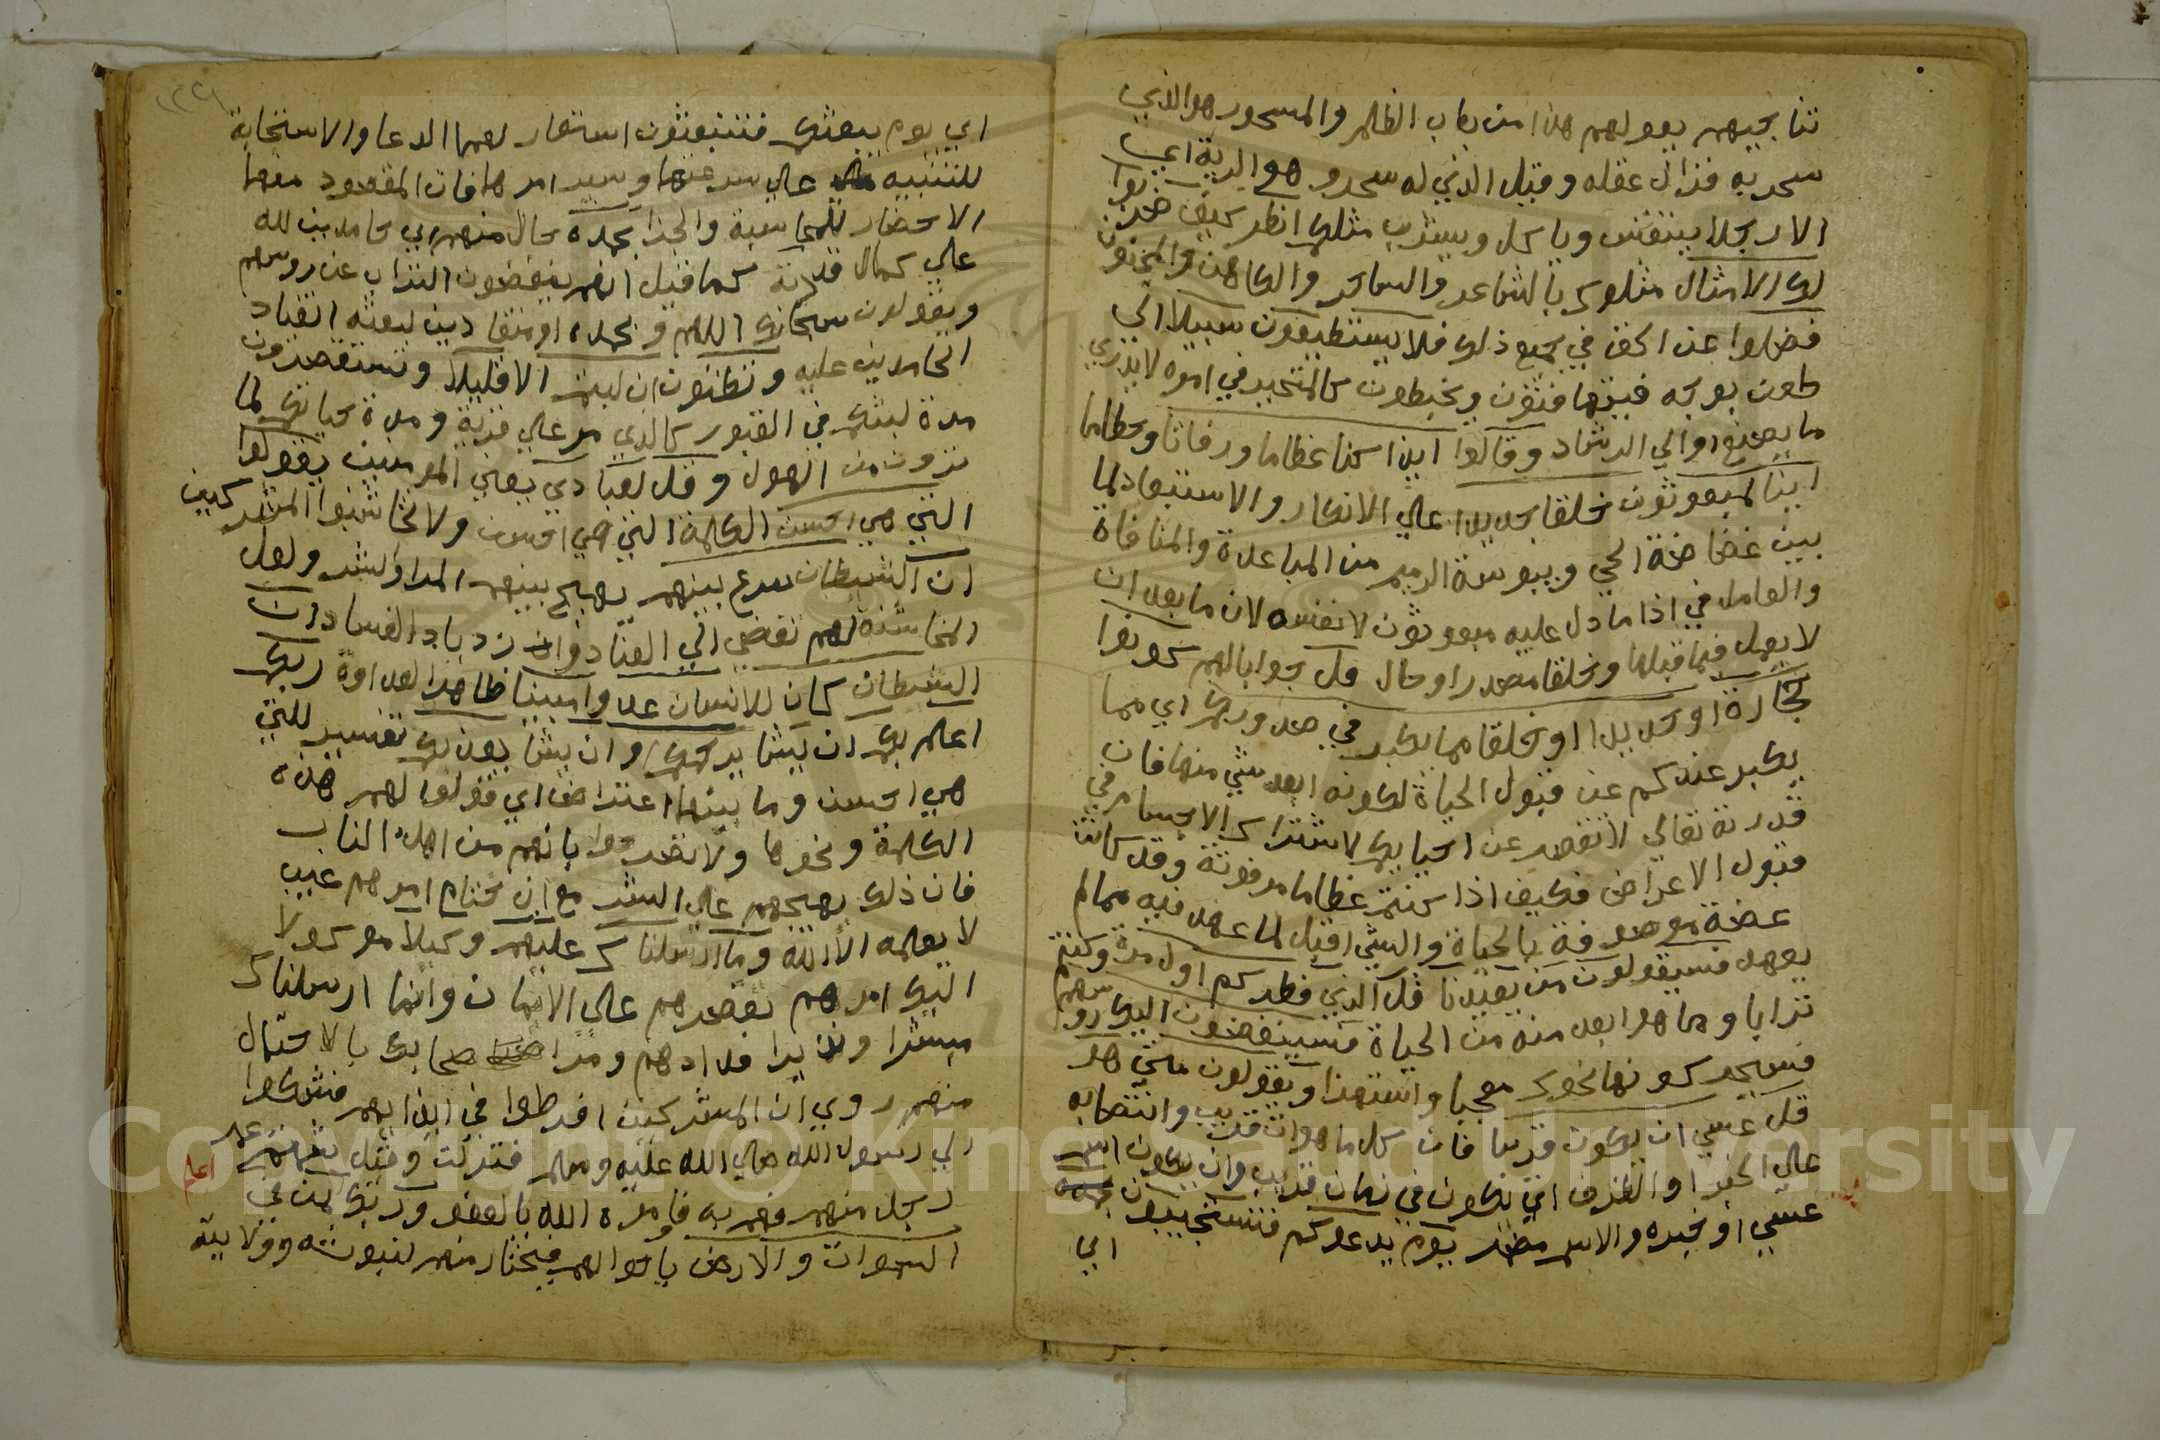 تناجيهم بقولهم هذا من باب الظلم والمسحور هو الذي
سحر به فزال عقله وقيل الذي له سحر وهو الرية اي
الا رجلا يتنفس وياكل ويشرب مثلكم انظر كيف ضربوا
لك الامثال مثلوك بالشاعر والساحر والكاهن والمجنون
فضلوا عن الحق في جميع ذلك فلا يستطيعون سبيلا الي
طعن بوجه فيتهافتون ويخبطون كالمتحير في امره لا يدري
ما يصنع او الي الرشاد وقالوا ايذا كنا عظاما ورفاتا وحطاما
اينا لمبعوثون خلقا جديدا علي الانكار والاستبعاد لما
بين غضاضة الحي ويبوسة الرميم من المباعدة والمنافاة
والعامل في اذا ما دل عليه مبعوثون لا نفسه لان ما بعد ان
لا يعمل فيما قبلها وخلقا مصدر او حال قل جوابا لهم كونوا
حجارة او حديدا او خلقا مما يكبر في صدوركم اي مما
يكبر عندكم عن قبول الحياة لكونه ابعد شي منها فان
قدرته تعالي لا تقصر عن احيايكم لاشتراك الاجسام في
قبول الاعراض فكيف اذا كنتم عظاما مرفوتة وقد كانت
غضة موصوفة بالحياة والشي اقبل لما عهد فيه مما لم
يعهد فسيقولون من يعيدنا قل الذي فطركم اول مرة وكنتم
ترابا وما هو ابعد منه من الحياة فسينغضون اليك روسهم
فسيحركونها نحوك تعجبا واستهزا ويقولون متي هو
قل عسي ان يكون قريبا فان كل ما هو ات قريب وانتصابه
علي الخبر او الظرف اي يكون في زمان قريب وان يكون اسم
عسي او خبره والاسم مضمر يوم يدعوكم فتستجيبون بحمده
اي
اي يوم يبعثكم فتنبعثون استعار لهما الدعا والاستجابة
للتنبيه علي سرعتها وتيسر امرهما فان المقصود منهما
الاحضار للمحاسبة والجزا بحمده حال منهم اي حامدين لله
علي كمال قدرته كما قيل انهم ينفضون التراب عن روسهم
ويقولون سبحانك اللهم وبحمدك او منقادين لبعثه انقياد
الحامدين عليه وتظنون ان لبثتم الا قليلا وتستقصرون
مدة لبثكم في القبور كالذي مر علي قرية ومدة حياتكم لما
ترون من الهول وقل لعبادي يعني المومنين يقولوا
التي هي احسن الكلمة التي هي احسن ولا تخاشنوا المشركين
ان الشيطان ينزغ بينهم يهيج بينهم المرا والشر ولعل
المخاشنة لهم تفضي الي العناد وازدياد الفساد ان
الشيطان كان للانسان عدوا مبينا ظاهر العداوة ربكم
اعلم بكم ان يشا يرحمكم او ان يشا يعذبكم تفسير للتي
هي احسن وما بينهما اعتراض اي قولوا لهم هذه
الكلمة ونحوها ولا تصرحوا بانهم من اهل النار
فان ذلك يهيجهم علي الشر مع ان ختام امرهم غيب
لا يعلمه الا الله وما ارسلناك عليهم وكيلا موكولا
اليك امرهم تقصرهم علي الايمان وانما ارسلناك
مبشرا ونذيرا فدارهم ومر اصحابك بالاحتمال
منهم روي ان المشركين افرطوا في ايذايهم فشكوا
الي رسول الله صلي الله عليه وسلم فنزلت وقيل شتم عمر
رجل منهم فهم به فامره الله بالعفو وربك اعلم بمن في
السموات والارض باحوالهم فيختار منهم لنبوته وولايته